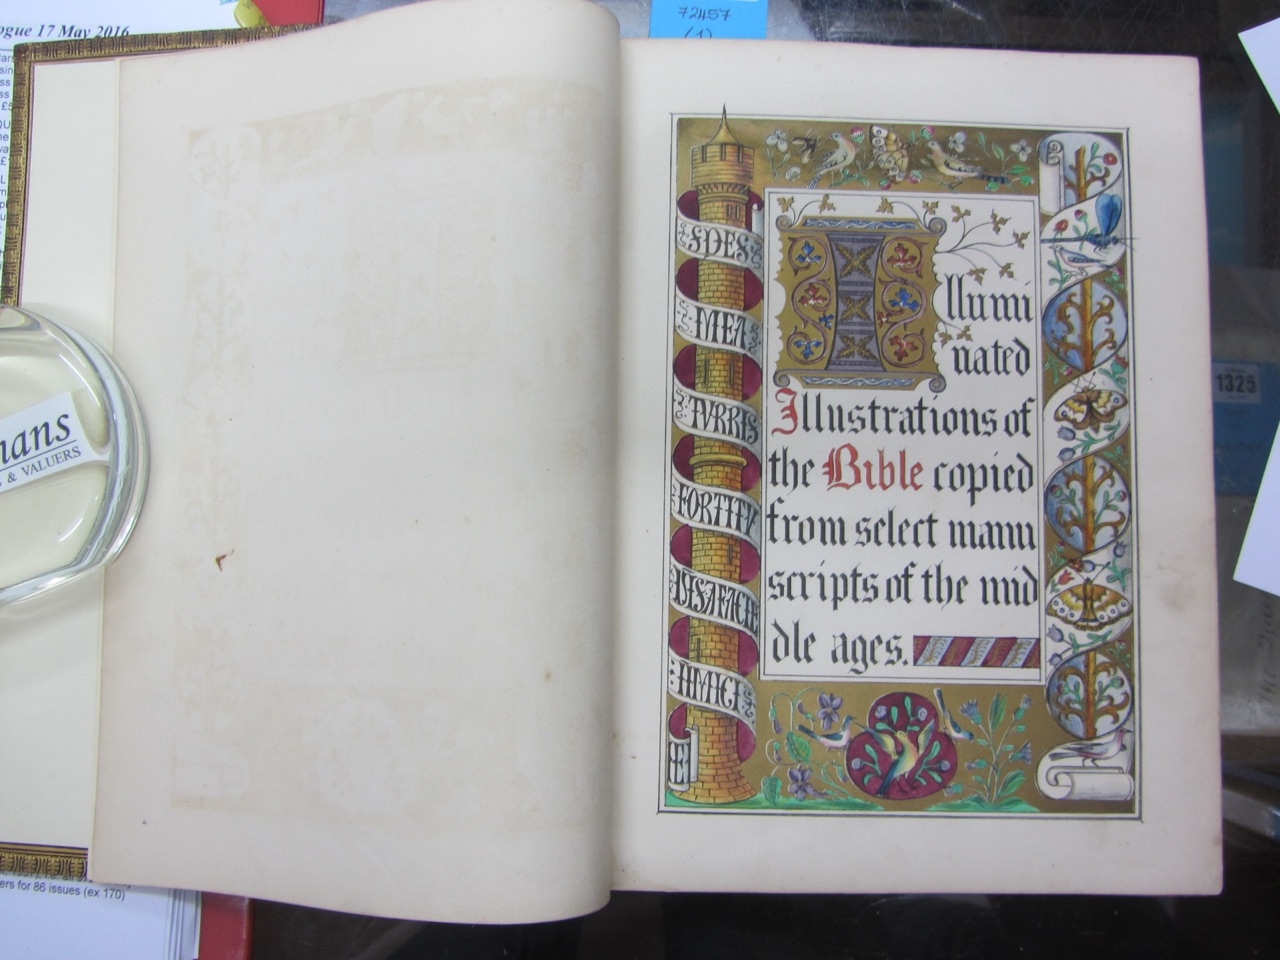 ogue 17 May 2016
72457
(1)
FIDES
MEA
TVRRIS
FORTITV
DIS A FACIE
INIMICI
Illumi
nated
Illustrations of
the Bible copied
from select manu
scripts of the mid
dle ages.
1325
nans
S & VALUERS
ers for 86 issues (ex 170)